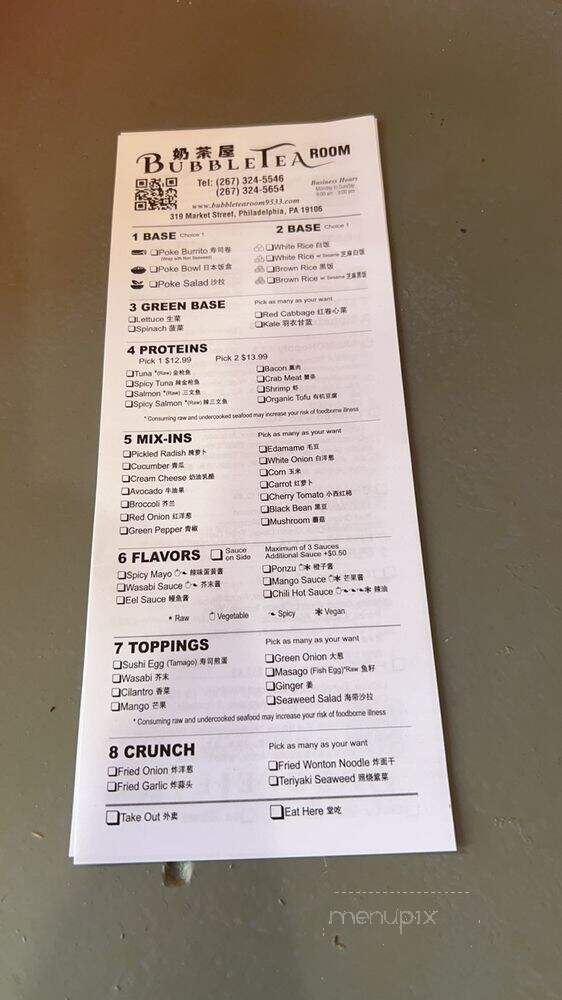 奶茶屋
BUBBLETEA ROOM
Tel: (267) 324-5546
(267) 324-5654
Business Hours
Monday to Sunday
www.bubbletearoom9533.com
319 Market Street, Philadelphia, PA 19106
1 BASE Choice 1
☐Poke Burrito 寿司卷
(Wrap with Nori Seaweed)
☐Poke Bowl 日本饭盒
☐Poke Salad 沙拉
2 BASE Choice 1
☐White Rice 白饭
☐White Rice w/ Sesame 芝麻白饭
☐Brown Rice 黑饭
☐Brown Rice w/ Sesame 芝麻黑饭
3 GREEN BASE Pick as many as your want
☐Lettuce 生菜
☐Spinach 菠菜
☐Red Cabbage 红卷心菜
☐Kale 羽衣甘蓝
4 PROTEINS
Pick 1 $12.99 Pick 2 $13.99
☐Tuna *(Raw) 金枪鱼
☐Spicy Tuna 辣金枪鱼
☐Salmon *(Raw) 三文鱼
☐Spicy Salmon *(Raw) 辣三文鱼
☐Bacon 熏肉
☐Crab Meat 蟹条
☐Shrimp 虾
☐Organic Tofu 有机豆腐
* Consuming raw and undercooked seafood may increase your risk of foodborne illness
5 MIX-INS Pick as many as your want
☐Pickled Radish 腌萝卜
☐Cucumber 青瓜
☐Cream Cheese 奶油乳酪
☐Avocado 牛油果
☐Broccoli 芥兰
☐Red Onion 红洋葱
☐Green Pepper 青椒
☐Edamame 毛豆
☐White Onion 白洋葱
☐Corn 玉米
☐Carrot 红萝卜
☐Cherry Tomato 小西红柿
☐Black Bean 黑豆
☐Mushroom 蘑菇
6 FLAVORS ☐ Sauce on Side
Maximum of 3 Sauces
Additional Sauce +$0.50
☐Spicy Mayo 辣味蛋黄酱
☐Wasabi Sauce 芥末酱
☐Eel Sauce 鳗鱼酱
☐Ponzu 橙子酱
☐Mango Sauce 芒果酱
☐Chili Hot Sauce 辣油
* Raw Vegetable Spicy Vegan
7 TOPPINGS Pick as many as your want
☐Sushi Egg (Tamago) 寿司煎蛋
☐Wasabi 芥末
☐Cilantro 香菜
☐Mango 芒果
☐Green Onion 大葱
☐Masago (Fish Egg)*Raw 鱼籽
☐Ginger 姜
☐Seaweed Salad 海带沙拉
* Consuming raw and undercooked seafood may increase your risk of foodborne illness
8 CRUNCH Pick as many as your want
☐Fried Onion 炸洋葱
☐Fried Garlic 炸蒜头
☐Fried Wonton Noodle 炸面干
☐Teriyaki Seaweed 照烧紫菜
☐Take Out 外卖
☐Eat Here 堂吃
menupix